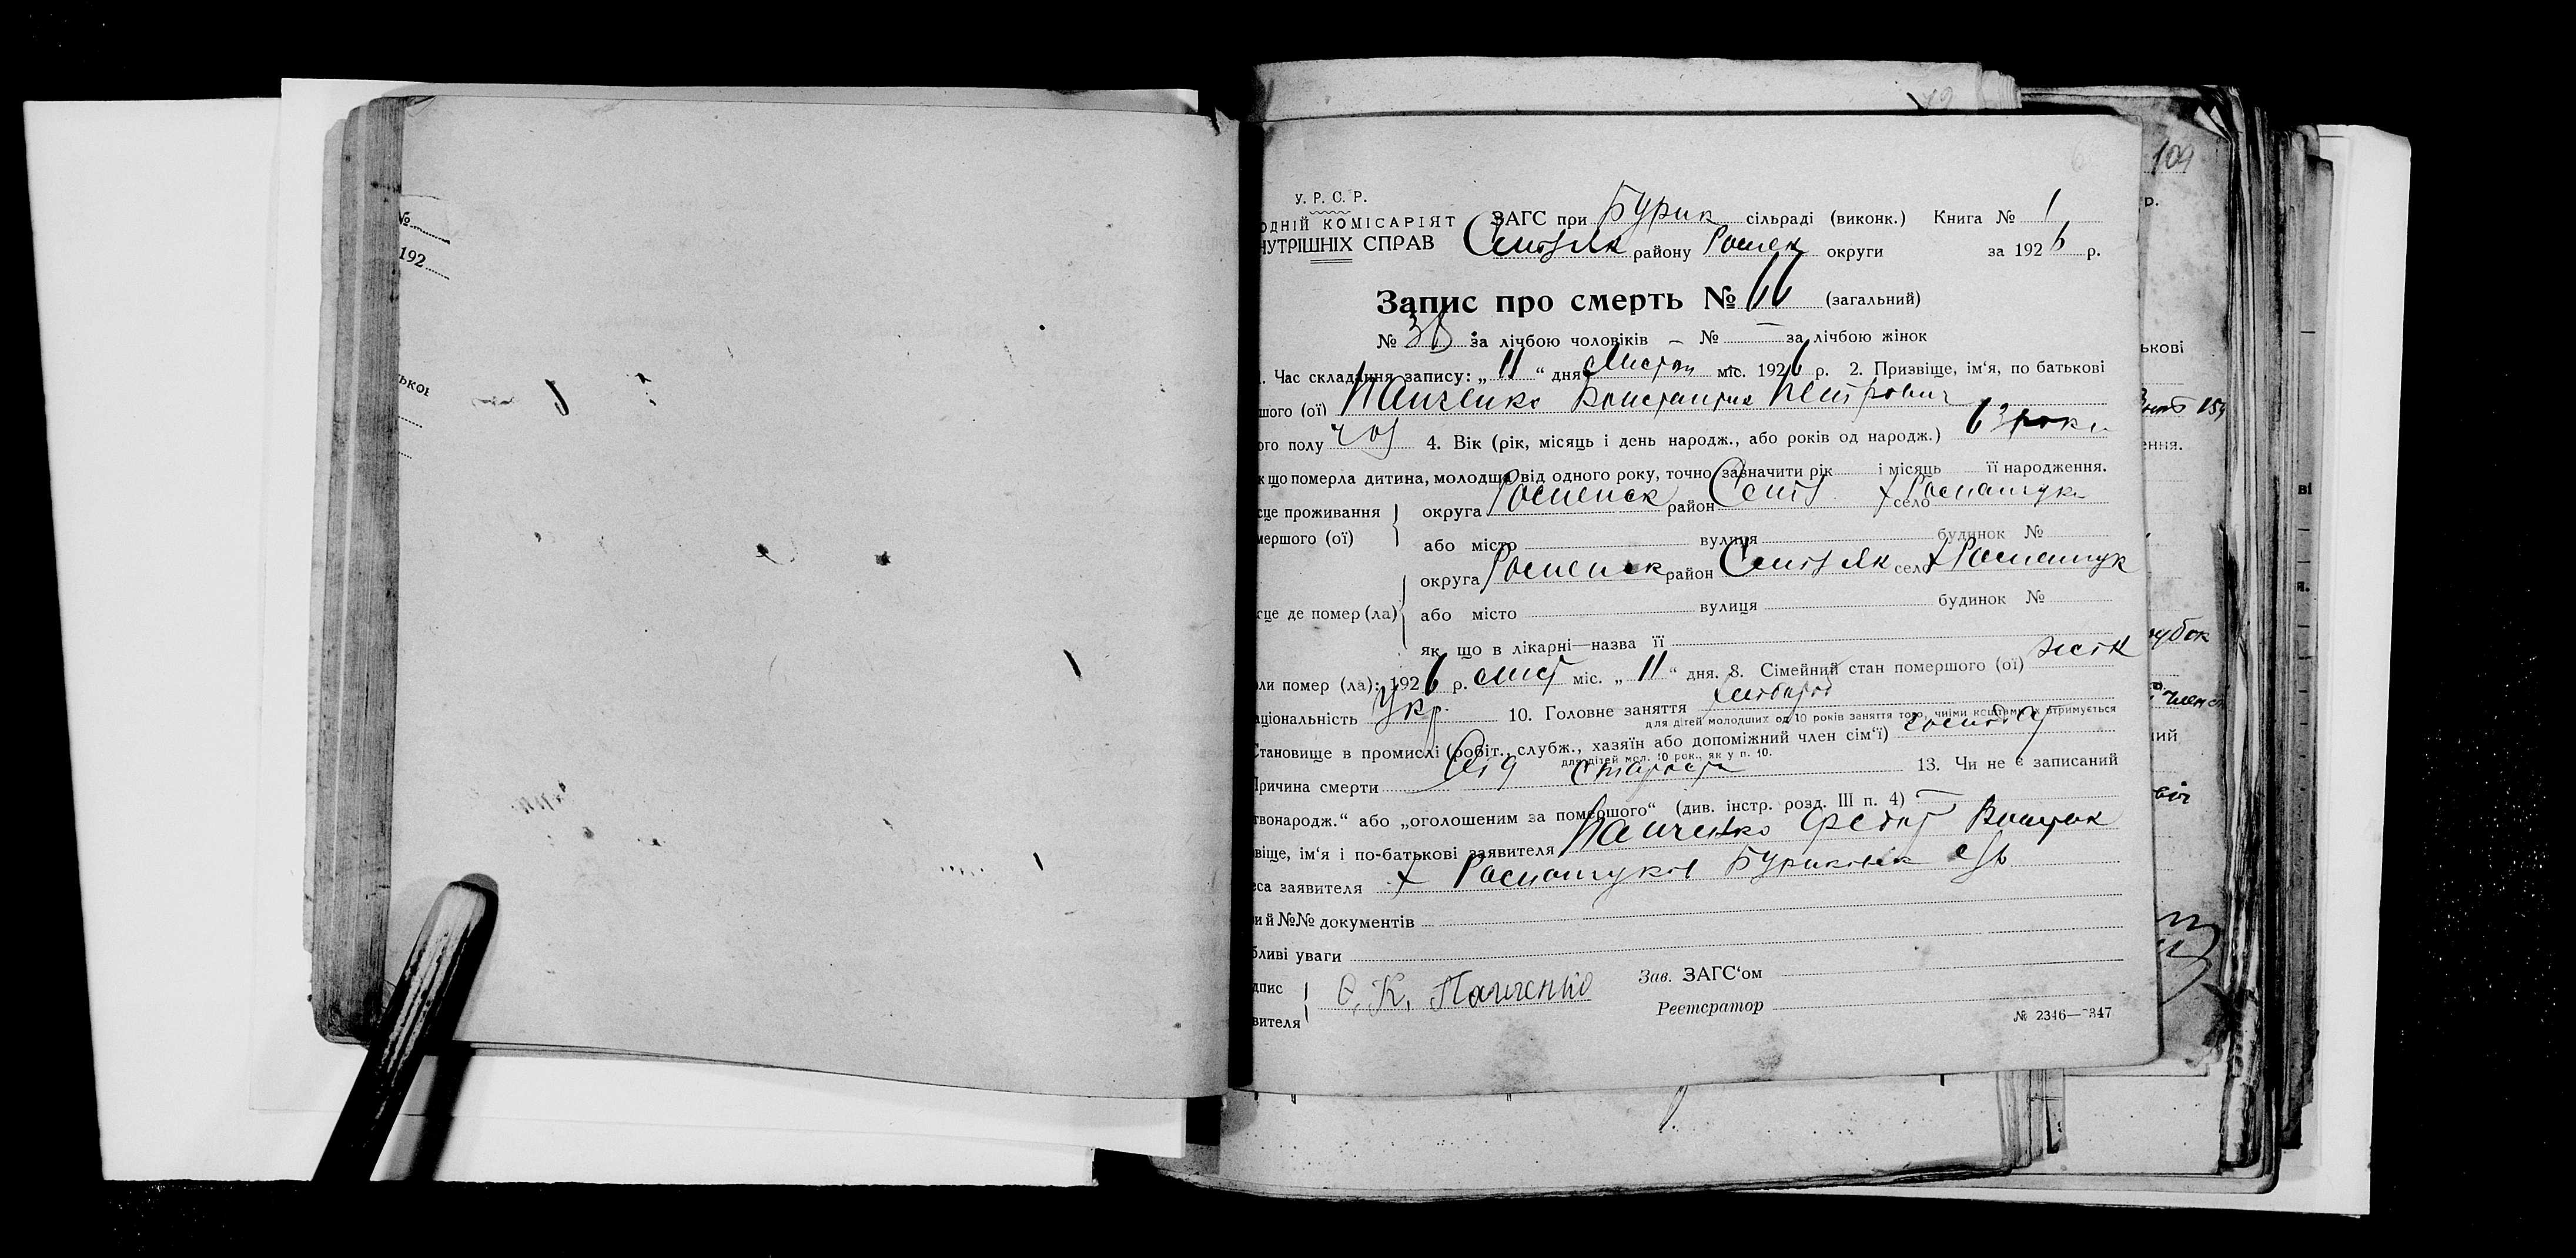 109
У. Р. С. Р.
ОДНІЙ КОМІСАРІЯТ
НУТРІШНІХ СПРАВ
ЗАГС при Бурик сільраді (виконк.) Книга № 1
району Ромен округи за 1926 р.
Запис про смерть № 66 (загальний)
№ 38 за лічбою чоловіків – № — за лічбою жінок
1. Час складання запису: „11“ дня Листоп міс. 1926 р. 2. Призвіще, ім‘я, по батькові
шого (ої) Панченко Константин Петрович
ого полу чол 4. Вік (рік, місяць і день народж., або років од народж.) 63 роки
кщо померла дитина, молодша від одного року, точно зазначити рік і місяць її народження.
сце проживання
мершого (ої)
округа Роменск район село х Ромашуки
або місто вулиця будинок №
округа Роменск район село х Ромашук
це де помер (ла)
або місто вулиця будинок №
як що в лікарні—назва її
оли помер (ла): 1926 р. лист міс. „11“ дня. 8. Сімейний стан помершого (ої)
аціональність Укр. 10. Головне заняття хлібороб
для дітей молодших од 10 років заняття того, чиїми коштами їх втримується
Становище в промислі (робіт., слубж., хазяїн або допоміжний член сім‘ї) господар
для дітей мол. 10 рок., як у п. 10.
Причина смерти Від старости 13. Чи не є записаний
твонародж.“ або „оголошеним за помершого“ (див. інстр. розд. III п. 4) —
віще, ім‘я і по-батькові заявителя Панченко Федот
еса заявителя х Ромашуков Буриковск с/р
и й №№ документів
бливі уваги
дпис
вителя
Ѳ. К. Панченко
Зав. ЗАГС‘ом
Реєстратор
№ 2346—2347
№
192